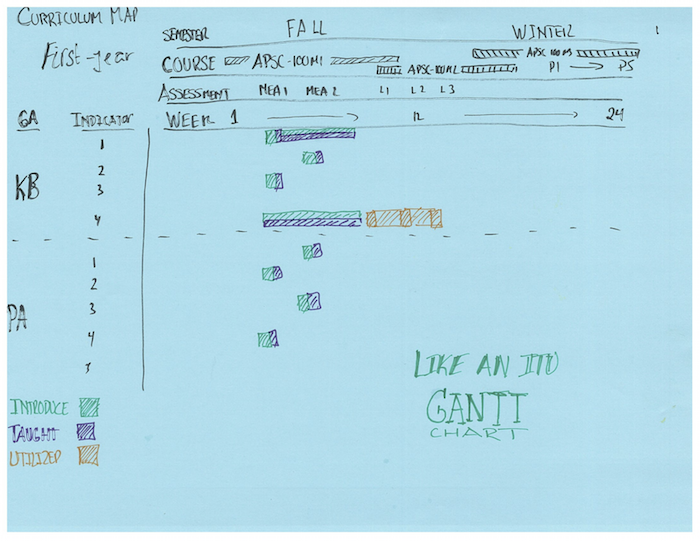 CURRICULUM MAP
First-year
SEMESTER FALL WINTER
COURSE APSC-100M1 APSC-100M2 APSC 100M3
P1 → P5
ASSESSMENT MEA 1 MEA 2 L1 L2 L3
GA INDICATOR WEEK 1 → 12 → 24
KB
1
2
3
4
PA
1
2
3
4
INTRODUCE
TAUGHT
UTILIZED
LIKE AN
GANTT
CHART